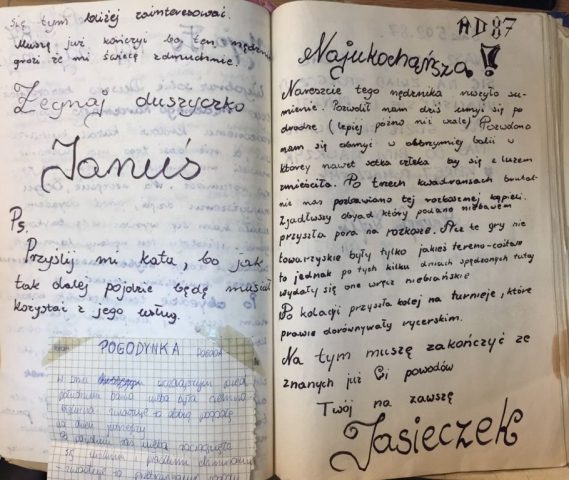 się tym bliżej zainteresować.
Muszę już kończyć bo ten nędznik
grozi że mi świecę zdmuchnie.
Żegnaj duszyczko
Januś
Ps.
Przyślij mi kata, bo jak
tak dalej pójdzie będę musiał
korzystać z jego usług.
POGODYNKA
W dniu wczorajszym przed
południem
AD 87
Najukochańsza!
Nareszcie tego nędznika ruszyło su-
mienie. Pozwolił nam dziś umyć się po
drodze (lepiej późno niż wcale) Pozwolono
nam się obmyć w olbrzymiej balii w
której nawet setka człeka by się z luzem
zmieściła. Po trzech kwadransach brutal-
nie nas pozbawiono tej rozkosznej kąpieli.
Zjadłwszy obyad który podano niebawem
przyszła pora na rozkosze. Ale te gry nie
towarzyskie były tylko jakieś
to jednak po tych kilku dniach spędzonych tutaj
wydały się one wręcz niebiańskie
Po kolacji przyszła kolej na turnieje, które
prawie dorównywały rycerskim.
Na tym muszę zakończyć ze
znanych już Ci powodów
Twój na zawszę
Jasieczek